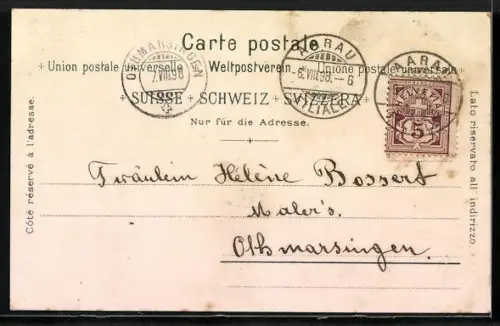 Carte postale.
Union postale universelle. Weltpostverein. Unione postale universale.
SUISSE + SCHWEIZ + SVIZZERA
Nur für die Adresse.
Côté réservé à l'adresse.
Lato riservato all' indirizzo.
OTHMARSINGEN
7.VIII.98
AARAU
6.VIII.98.–6
FILIALE
AARAU
HELVETIA
5
Fräulein Hélène Bossert
Maler's.
Othmarsingen.